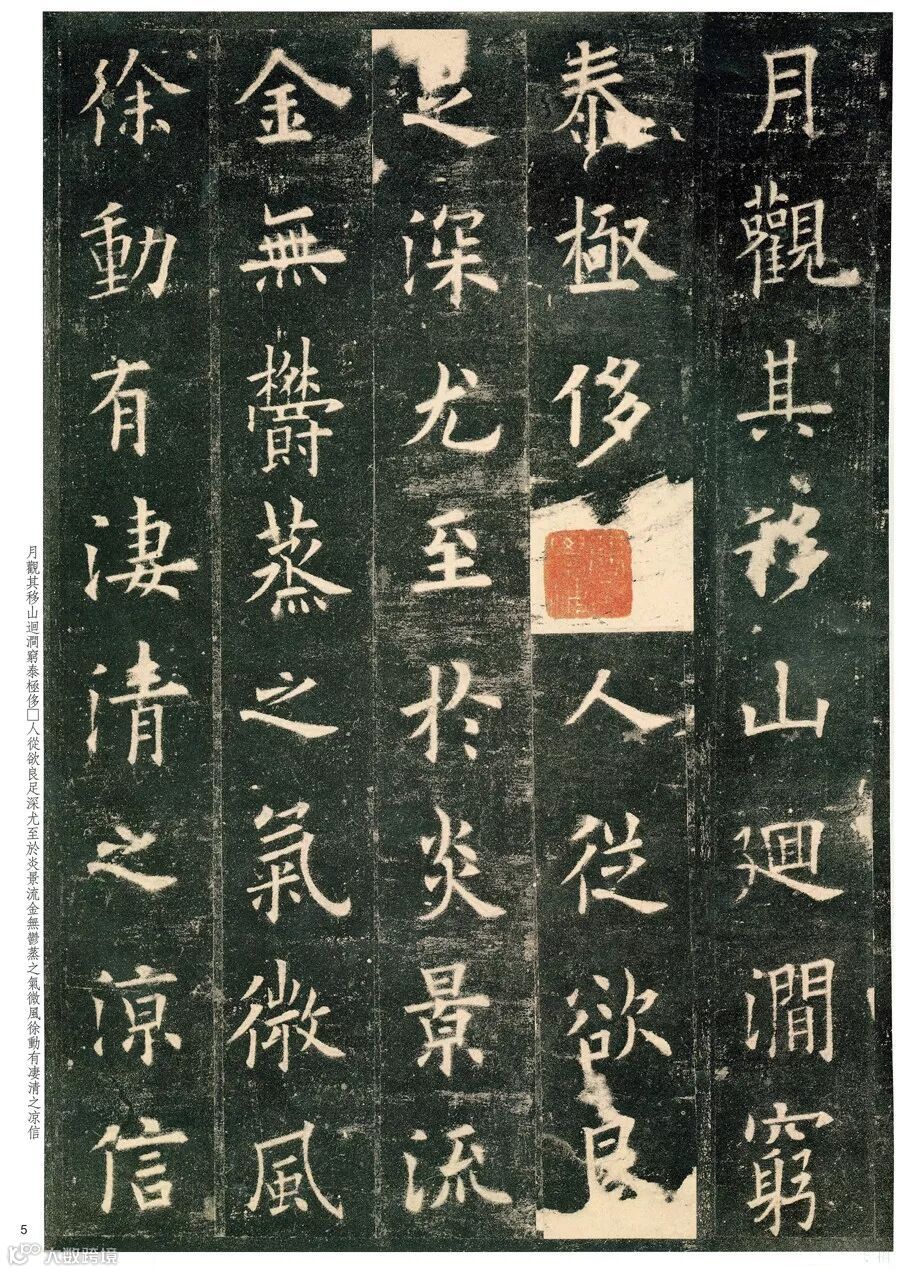 月觀其移山廻澗窮
泰極侈人從欲良
足深尤至於炎景流
金無鬱蒸之氣微風
徐動有淒清之涼信
月觀其移山迴澗窮泰極侈□人從欲良足深尤至於炎景流金無鬱蒸之氣微風徐動有凄清之凉信
5
大数跨境